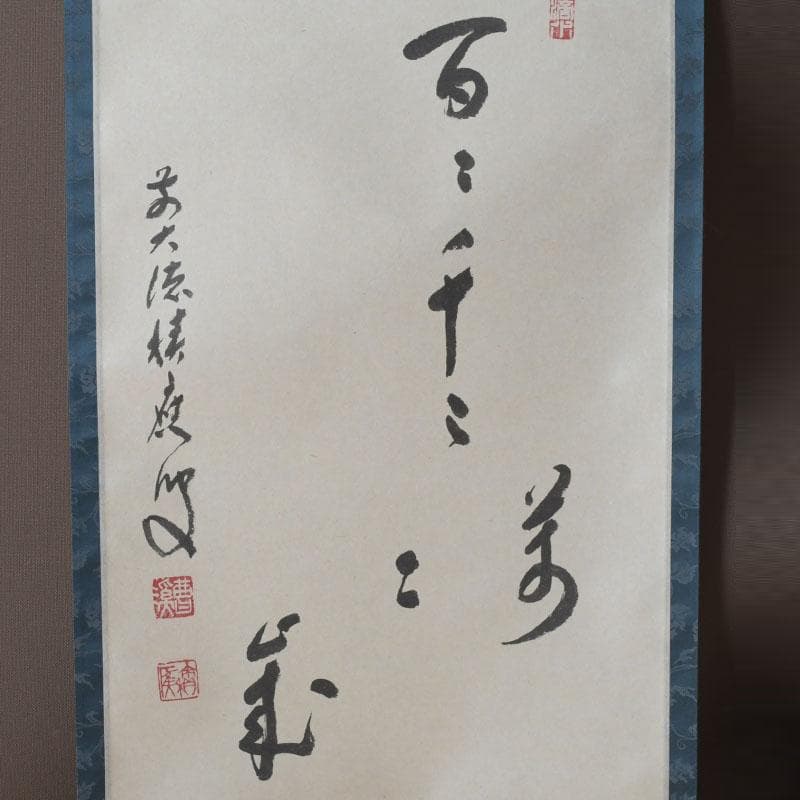 百々千々
萬々
歳
前大徳積應叟
曹溪